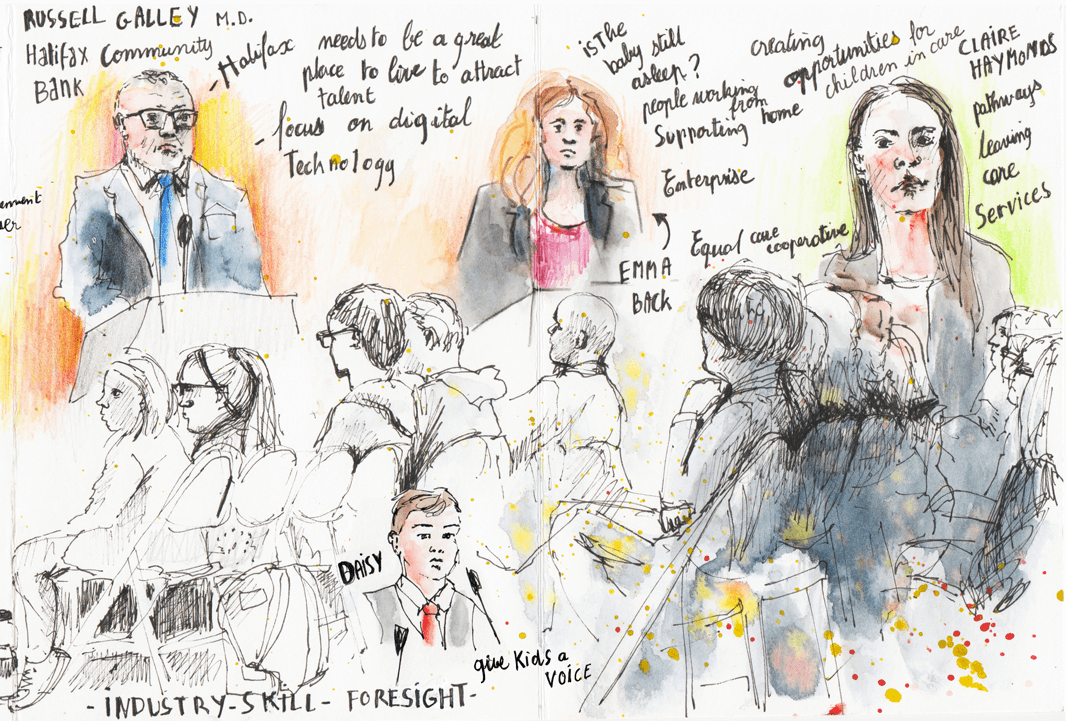 RUSSELL GALLEY M.D.
Halifax Community
Bank
- Halifax needs to be a great
place to live to attract
talent
- focus on digital
Technology
is the
baby still
asleep?
people working
from home
Supporting
Enterprise
EMMA
BACK
Equal care
cooperative
creating
opportunities for
children in care
CLAIRE
HAYMONDS
pathways
leaving
care
Services
DAISY
give Kids a
VOICE
- INDUSTRY - SKILL - FORESIGHT -